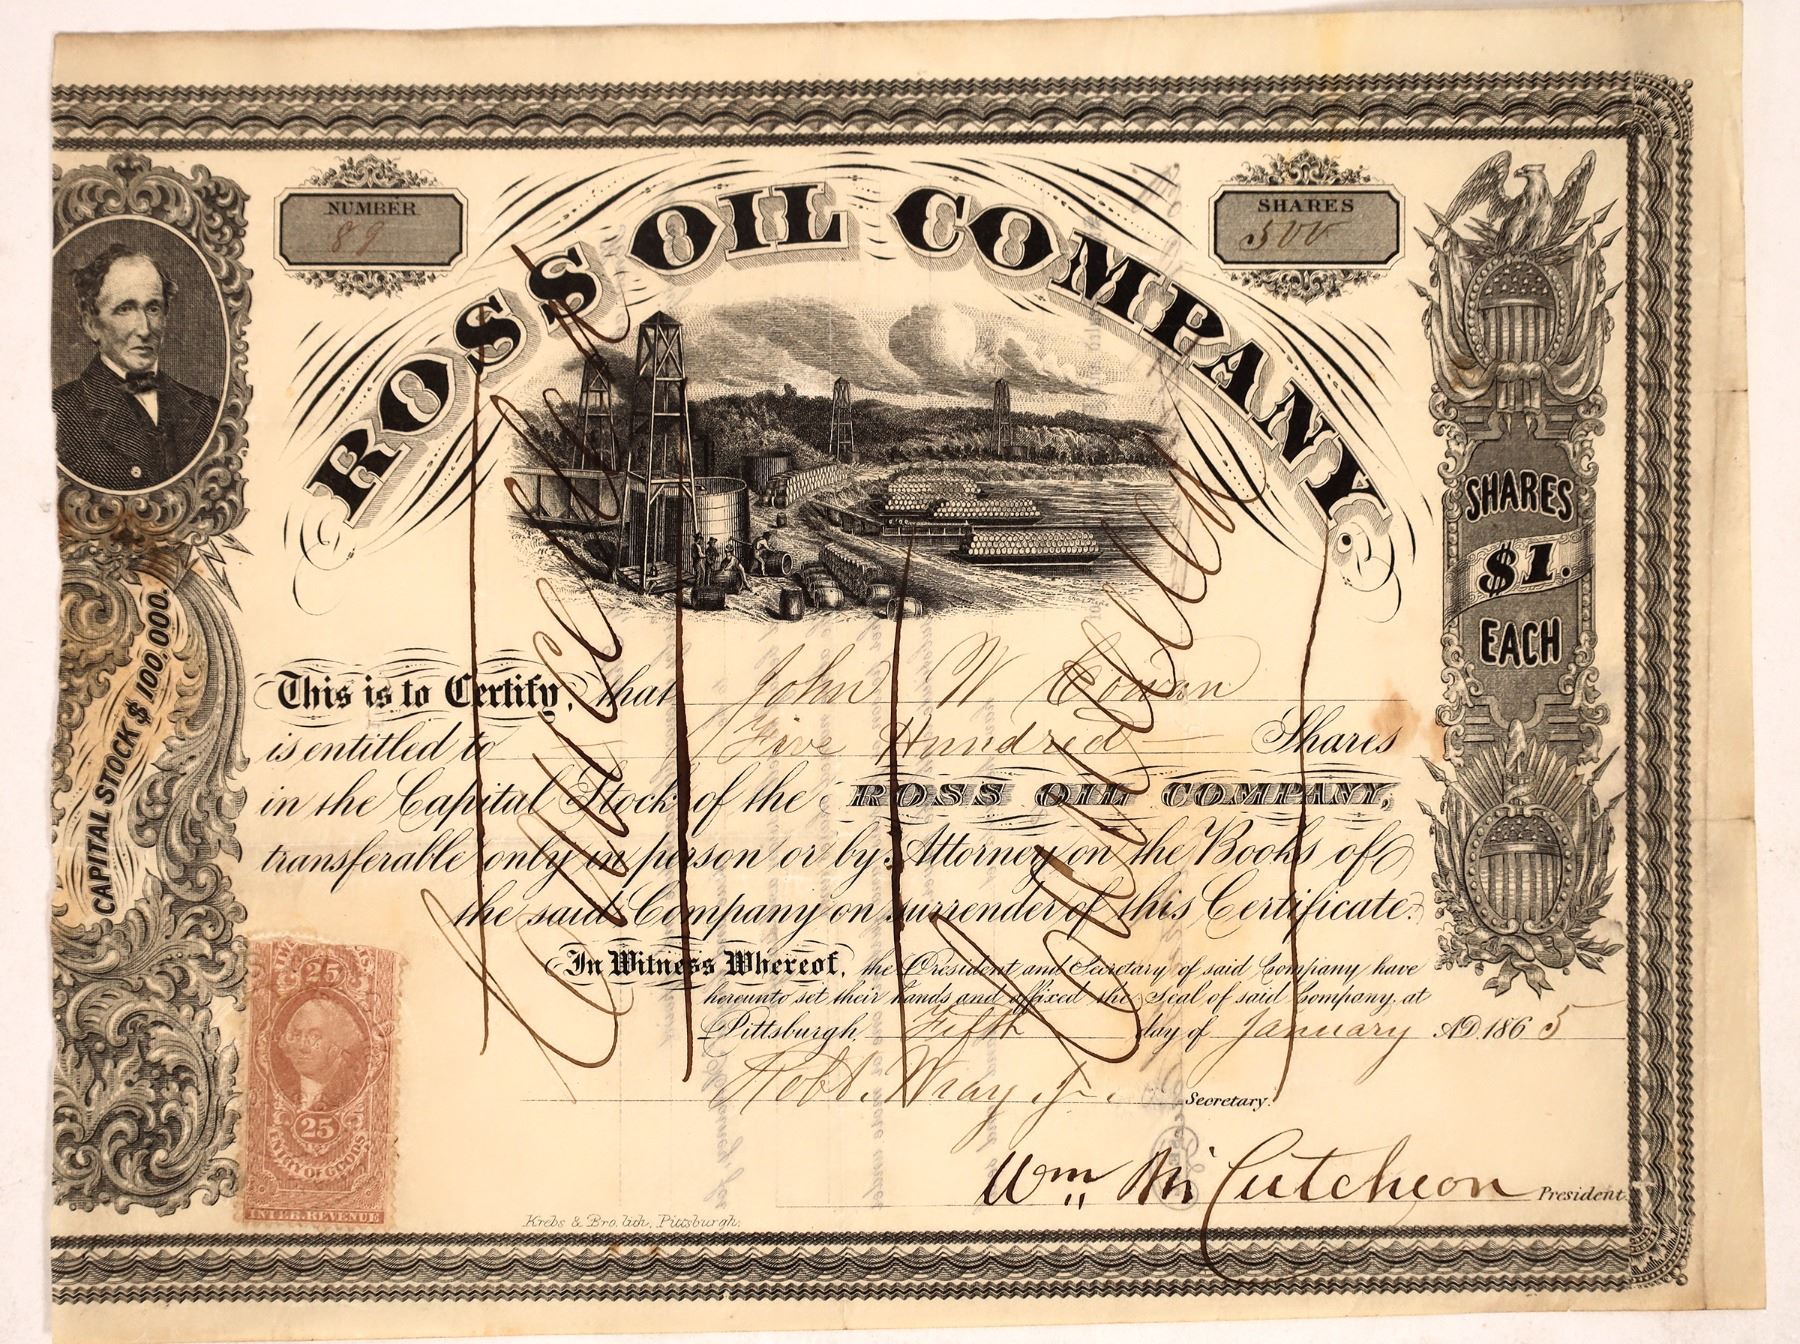 NUMBER
89
SHARES
500
ROSS OIL COMPANY
CAPITAL STOCK $ 100,000.
SHARES
$1.
EACH
Cancelled
Cancelled
This is to Certify, that John W Cowan
is entitled to Five Hundred Shares
in the Capital Stock of the ROSS OIL COMPANY,
transferable only in person or by Attorney on the Books of
the said Company on surrender of this Certificate.
In Witness Whereof, the President and Secretary of said Company have
hereunto set their hands and affixed the Seal of said Company, at
Pittsburgh, Fifth day of January AD. 1865
Robt. Wray, Jr. Secretary.
Wm McCutcheon President.
25
25
ENTRY OF GOODS
INTER. REVENUE
Krebs & Bro. lith. Pittsburgh.